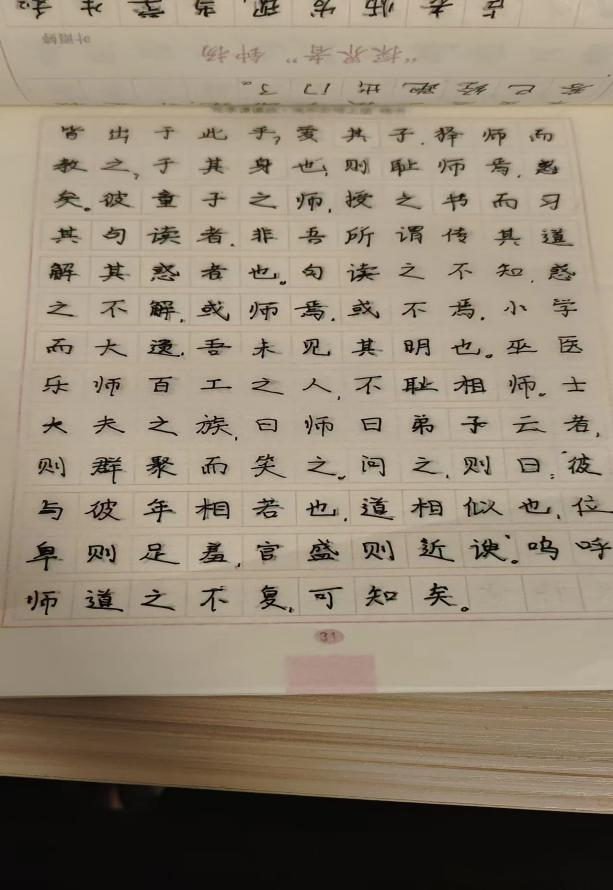 点考师发现当堂生和
“探界者”钟扬
叶雨婷
答已经跑出门了。
皆出于此乎?爱其子,择师而
教之,于其身也,则耻师焉,惑
矣。彼童子之师,授之书而习
其句读者,非吾所谓传其道
解其惑者也。句读之不知,惑
之不解,或师焉,或不焉,小学
而大遗,吾未见其明也。巫医
乐师百工之人,不耻相师。士
大夫之族,曰师曰弟子云者,
则群聚而笑之。问之,则曰:“彼
与彼年相若也,道相似也,位
卑则足羞,官盛则近谀。”呜呼
师道之不复,可知矣。
31